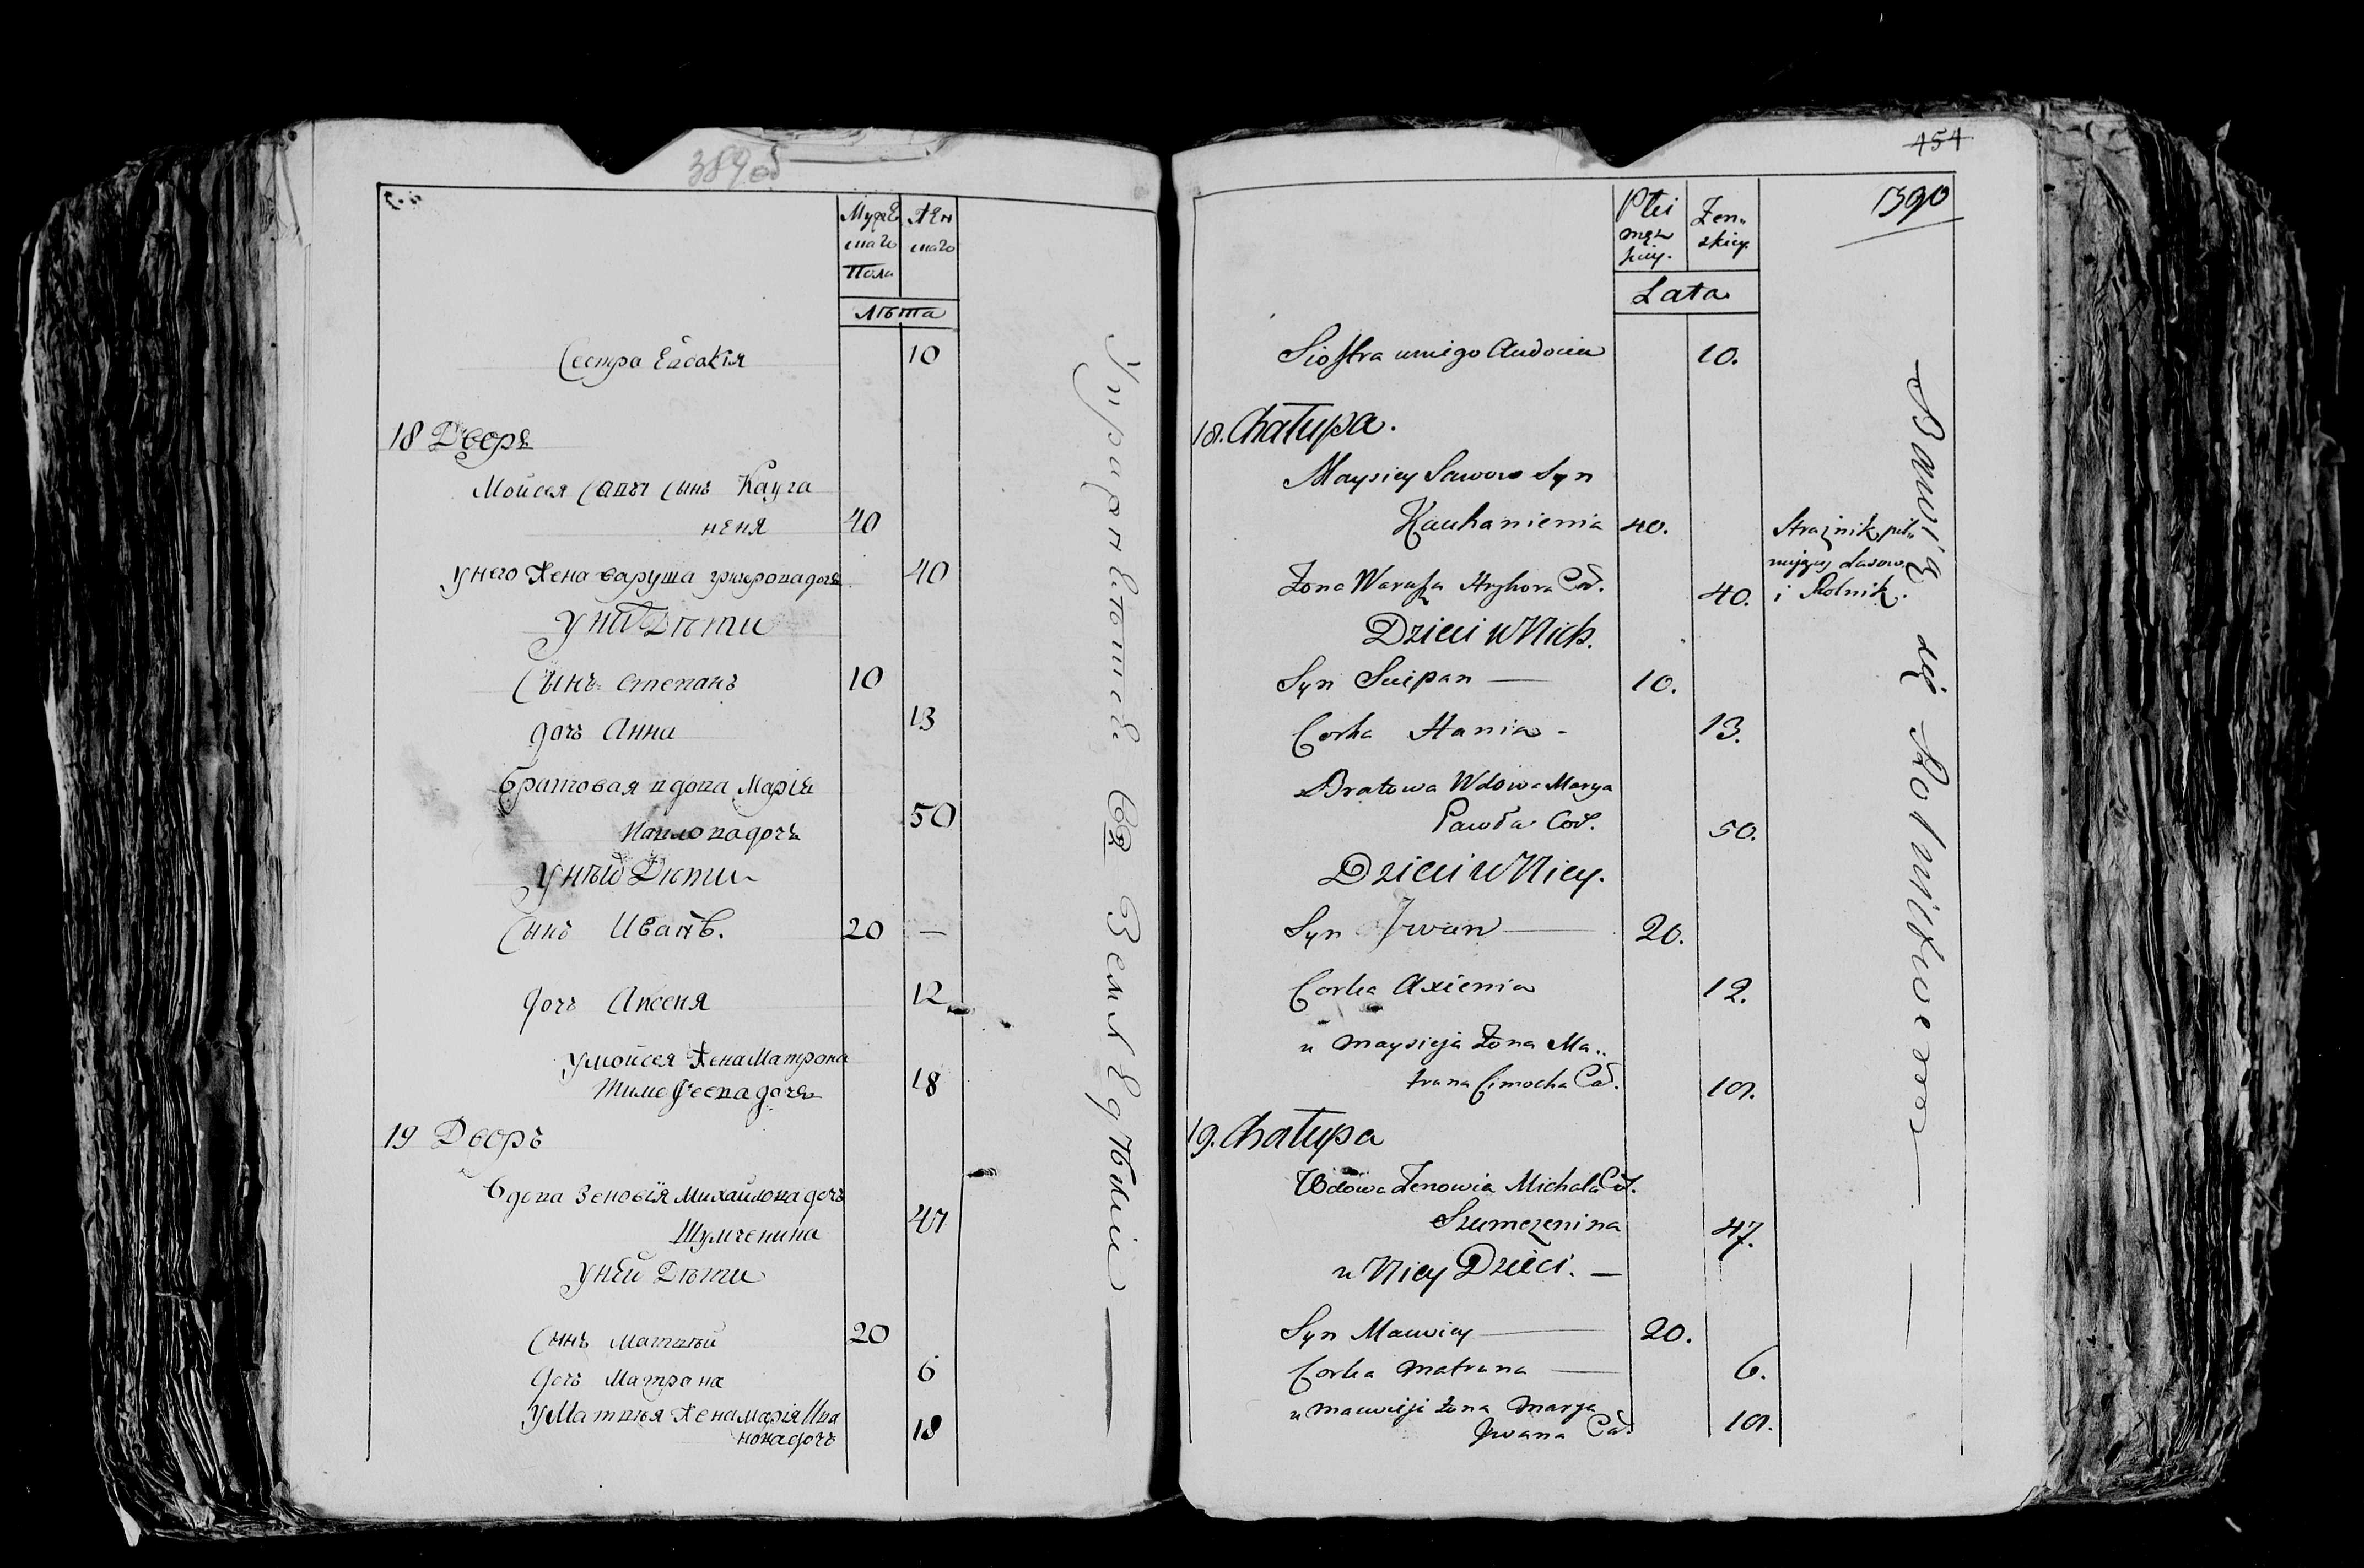 389 об
Муже
скаго
Пола
Жен
скаго
Лѣта
Сестра Евдокія 10
18 Дворъ
Мойсея Савы сынъ Кауга
неня 40
у него Жена варуша григорова дочь 40
у них Дѣти
Сынъ степанъ 10
дочь Анна 13
братовая вдова Марія
Павлова дочь 50
у ней Дѣти
Сынъ Иванъ. 20 —
дочь Аксеня 12
у мойсея Жена Матрона
Тимофеева дочь 18
19 Дворъ
вдова Зеновія Михайлова дочь
Шумченина 47
у ней Дѣти
Сынъ Матвѣй 20
дочь Матрона 6
у Матвѣя Жена Марія Ива
нова дочь 18
Упражняются въ Земледѣліи
454
1390
Płci
męz
kiey.
Żen„
skiey
Lata
Siostra u niego Audocia 10.
18. Chałupa.
Maysiey Sawow Syn
Kauhanienia 40.
Strażnik pil„
nujący Lasow
i Rolnik.
Żona Warusza Hryhora Cor. 40.
Dzieci u Nich.
Syn Sciepan — 10.
Corka Hania - 13.
Bratowa Wdowa Marya
Pawła Cor. 50.
Dzieci u Niey.
Syn Jwan — 20.
Corka Axienia 12.
u Maysieja Żona Ma„
trana Cimocha Cor. 18.
19. Chałupa
Wdowa Zenowia Michała Cor.
Szumczenina 47.
u Niey Dzieci. —
Syn Macwiey — 20.
Corka Matrana — 6.
u Macwieja żona Marya
Jwana Cor. 18.
Bawią się Rolnictwem —